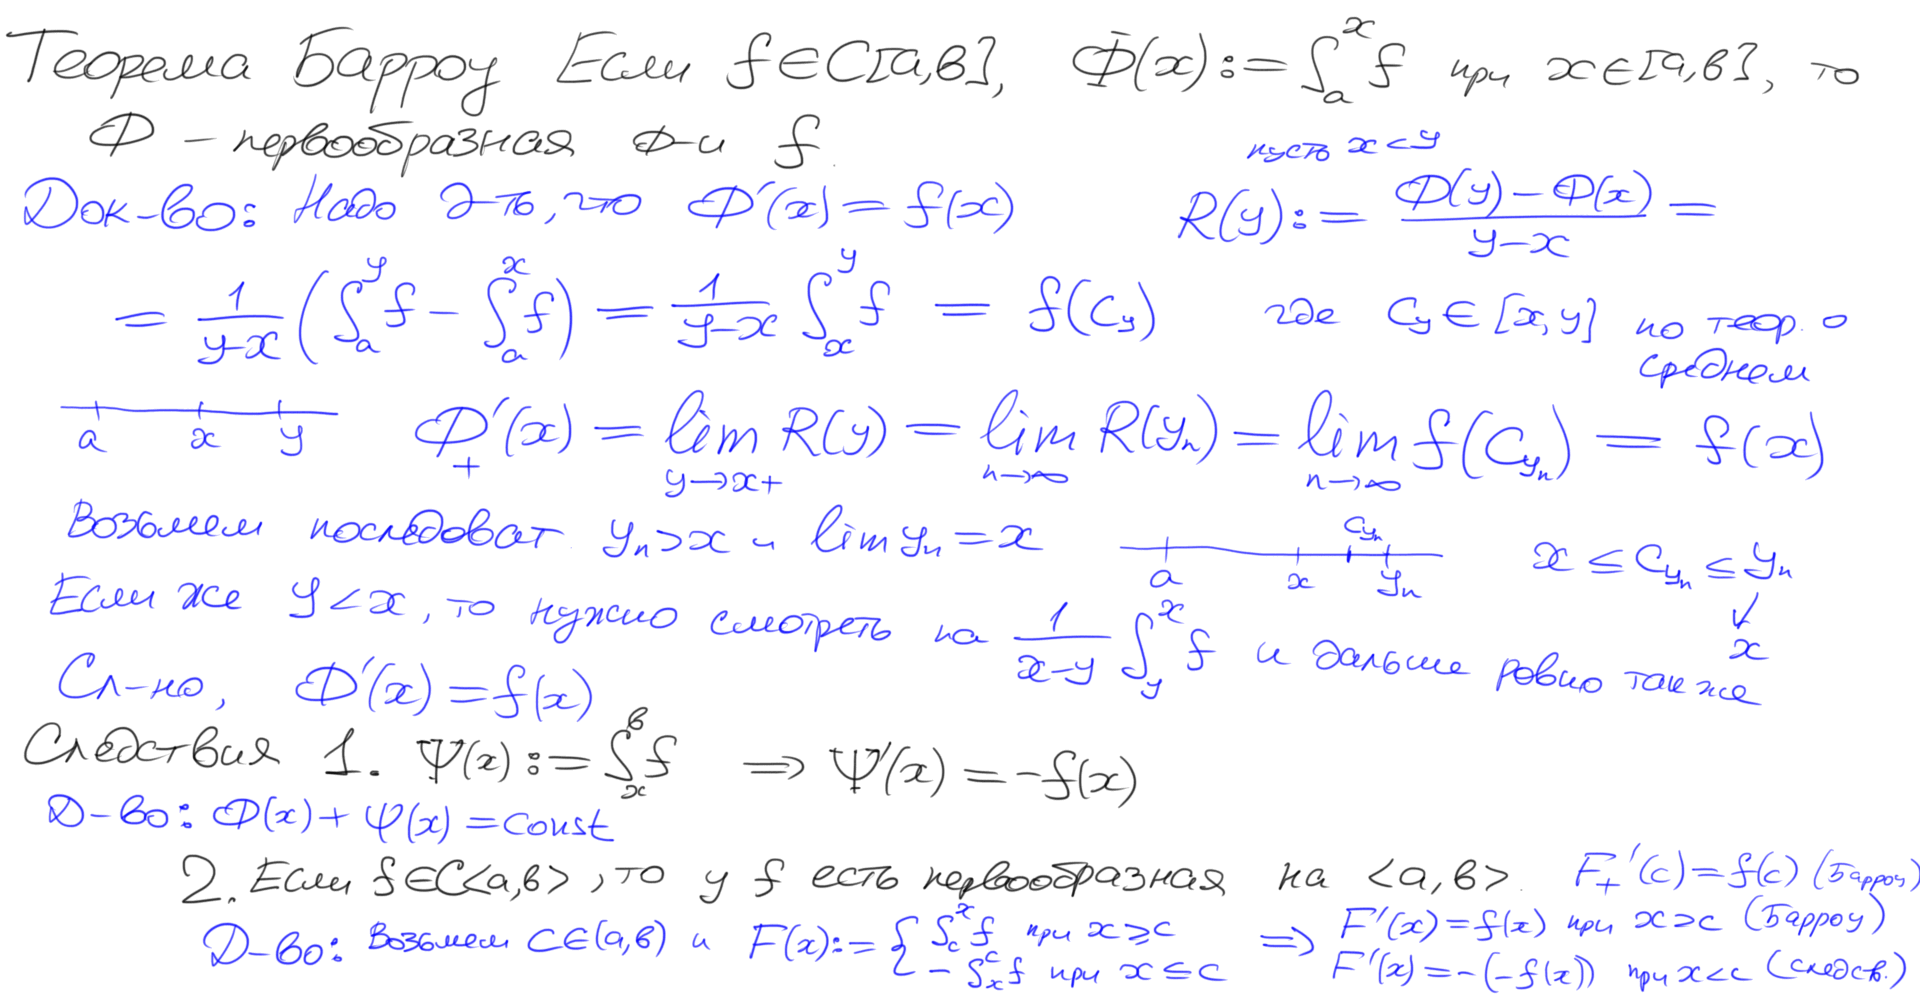 Теорема Барроу Если f∈C[a,b], Φ(x):=∫_a^x f при x∈[a,b], то
Φ – первообразная ф-и f.
пусть x<y
Док-во: Надо д-ть, что Φ'(x)=f(x) R(y):= (Φ(y)−Φ(x))/(y−x) =
= 1/(y−x) (∫_a^y f − ∫_a^x f) = 1/(y−x) ∫_x^y f = f(c_y) где c_y∈[x,y] по теор. о
среднем
a x y Φ'_+(x) = lim_{y→x+} R(y) = lim_{n→∞} R(y_n) = lim_{n→∞} f(c_{y_n}) = f(x)
Возьмем последоват y_n>x и lim y_n = x a x c_{y_n} y_n x ≤ c_{y_n} ≤ y_n ↓ x
Если же y<x, то нужно смотреть на 1/(x−y) ∫_y^x f и дальше ровно так же
Сл-но, Φ'(x)=f(x)
Следствия 1. Ψ(x):=∫_x^b f ⇒ Ψ'(x)=−f(x)
Д-во: Φ(x)+Ψ(x)=const
2. Если f∈C<a,b>, то у f есть первообразная на <a,b>. F_+'(c)=f(c) (Барроу)
Д-во: Возьмем c∈(a,b) и F(x):= { ∫_c^x f при x≥c ⇒ F'(x)=f(x) при x>c (Барроу)
−∫_x^c f при x≤c F'(x)=−(−f(x)) при x<c (следств.)